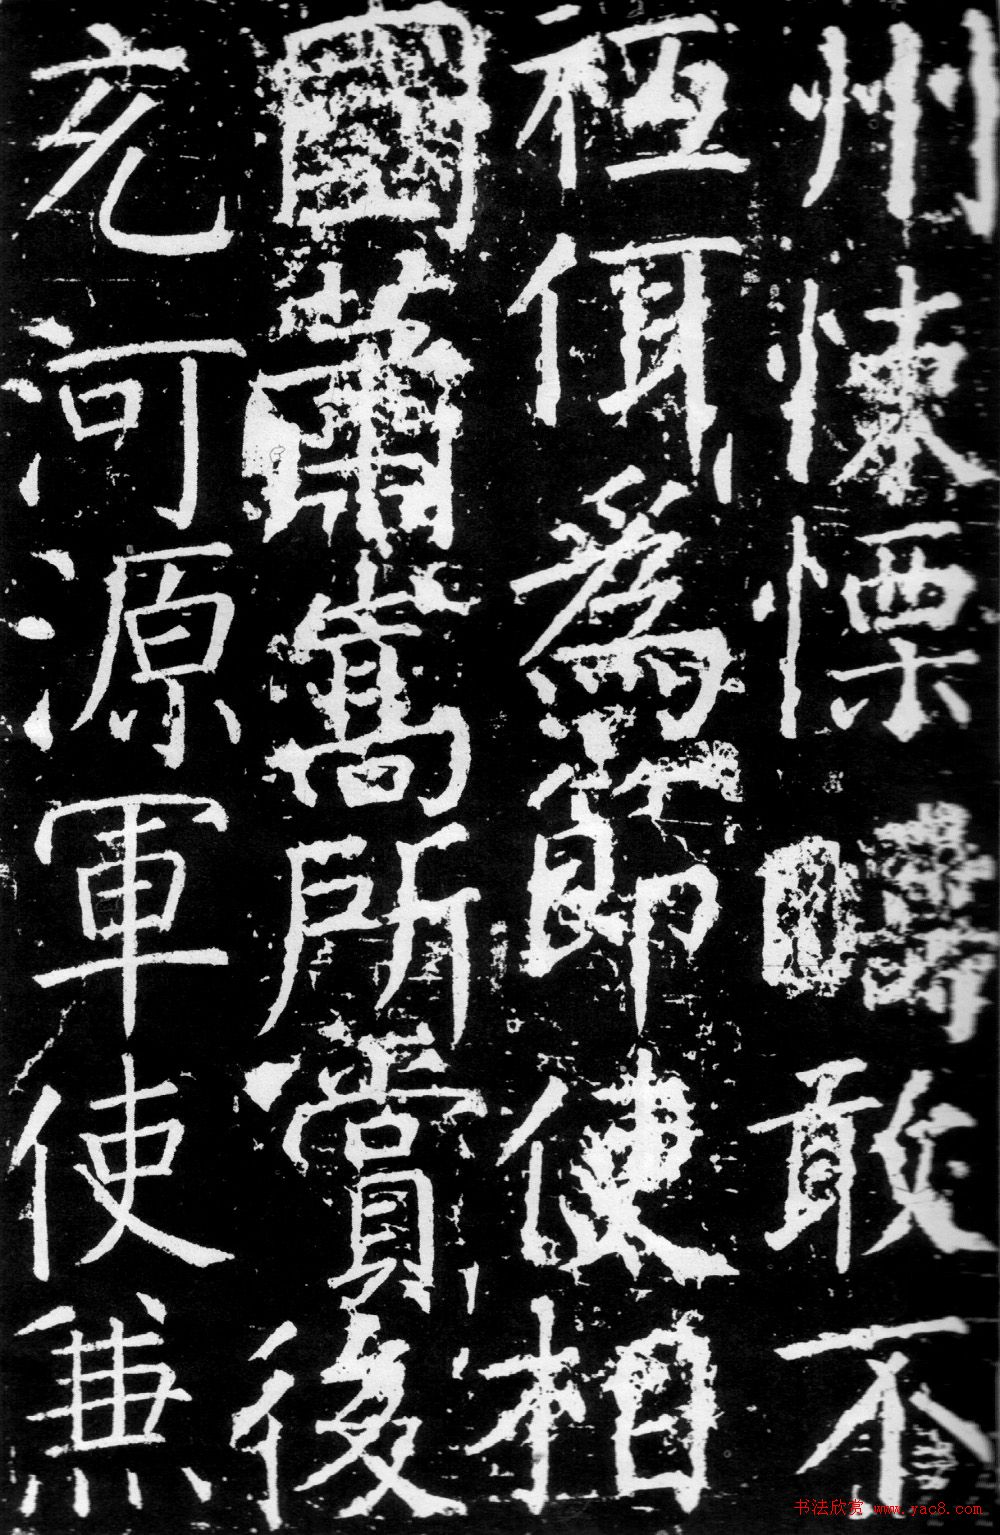 州悚慄疇敢不
祗佴為節使相
國蕭嵩所賞後
充河源軍使兼
书法欣赏 www.yac8.com